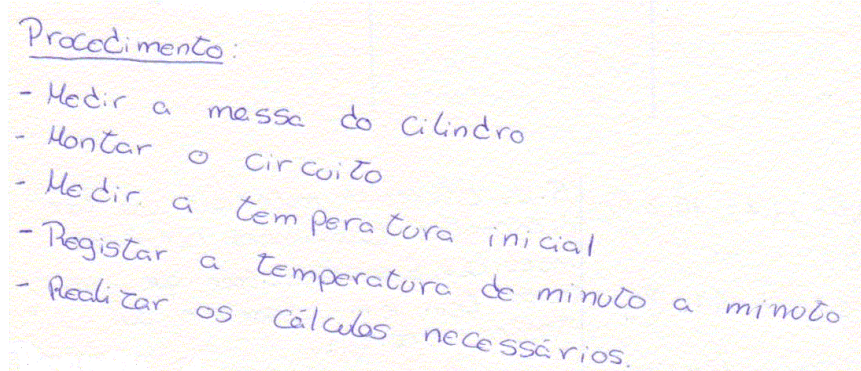 Procedimento:
- Medir a massa do cilindro
- Montar o circuito
- Medir a temperatura inicial
- Registar a temperatura de minuto a minuto
- Realizar os cálculos necessários.